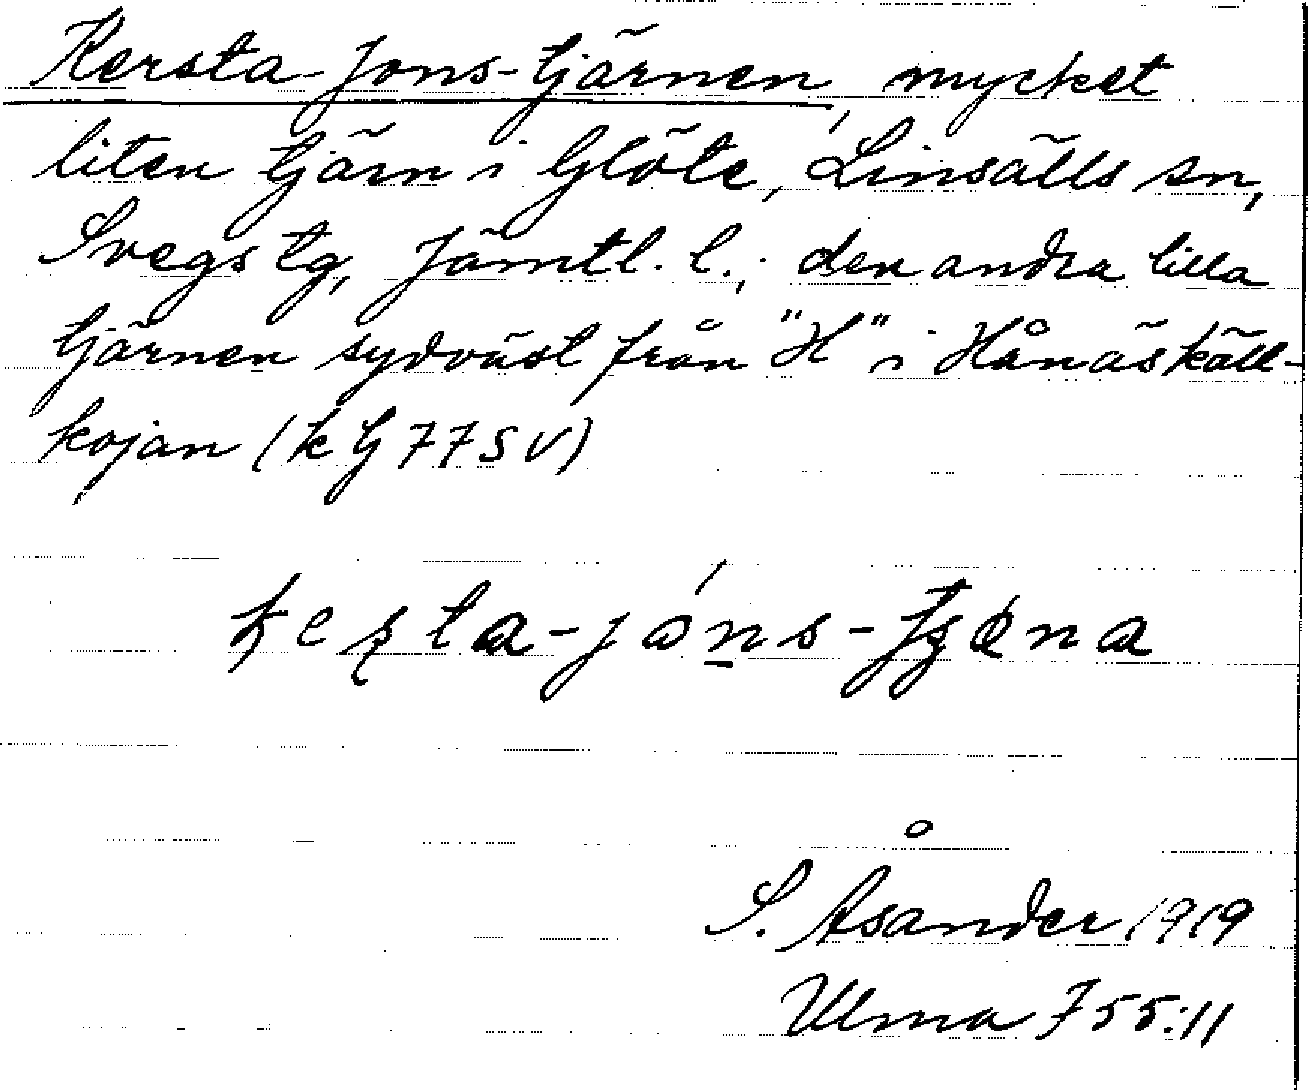 Kersta-Jons-tjärnen, mycket
liten tjärn i Glöte, Linsälls sn,
Svegs tg, Jämtl. l.; den andra lilla
tjärnen sydväst från "H" i Hånäskäll-
kojan (k G 77 SV)
S. Åsander 1919
Ulma 755:11